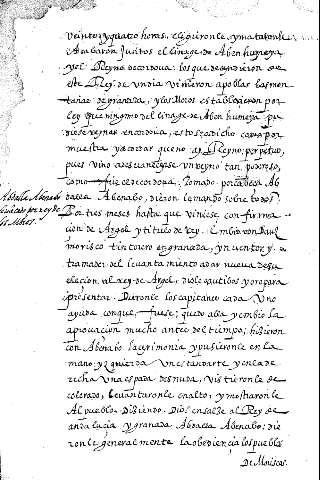 veinte y quatro horas, eligieronle, y una tarde se
Acabaron Juntos el linage de Aben humeya
y el Reyno de cordova: los que decendieron de
este Rey. de un dia vinieron a poblar las mon
tañas de granada, y los Moros establecieron por
ley que ninguno del linage de Aben humeya pu
diese reynar en cordova, esto se a dicho para
muestra y acordar que no ay Reyno perpetuo,
pues vino a desvanecerse un reyno tan poderoso,
como fue el de cordova. Tomado por cabeça Ab
dalla Abenabo, dieron le mando sobre todos.
Por tres meses hasta que viniese confirma
cion de Argel y titulo de rey. Embio con
morisco tintorero en granada, y inventor y
tramador del levantamiento a dar nueva de su
eleccion al rey de Argel, diole cautibos y ropa para
presentar. Dieronle los capitanes cada uno
ayuda con que fuese; quedo alla y embio la
aprovacion mucho antes del tiempo; hicieron
con Abenabo la cerimonia y pusieronle en la
mano yzquierda un estandarte y en la de
recha una espada desnuda, vistieronle de
colorado, levantaronle en alto, y mostraronle
Al pueblo. Diziendo. Dios ensalze al Rey de
andalucia y granada Abdalla Abenabo: die
ronle generalmente la obediencia los pueblos
De Moriscos
Abdalla Abenabo
los Moros.